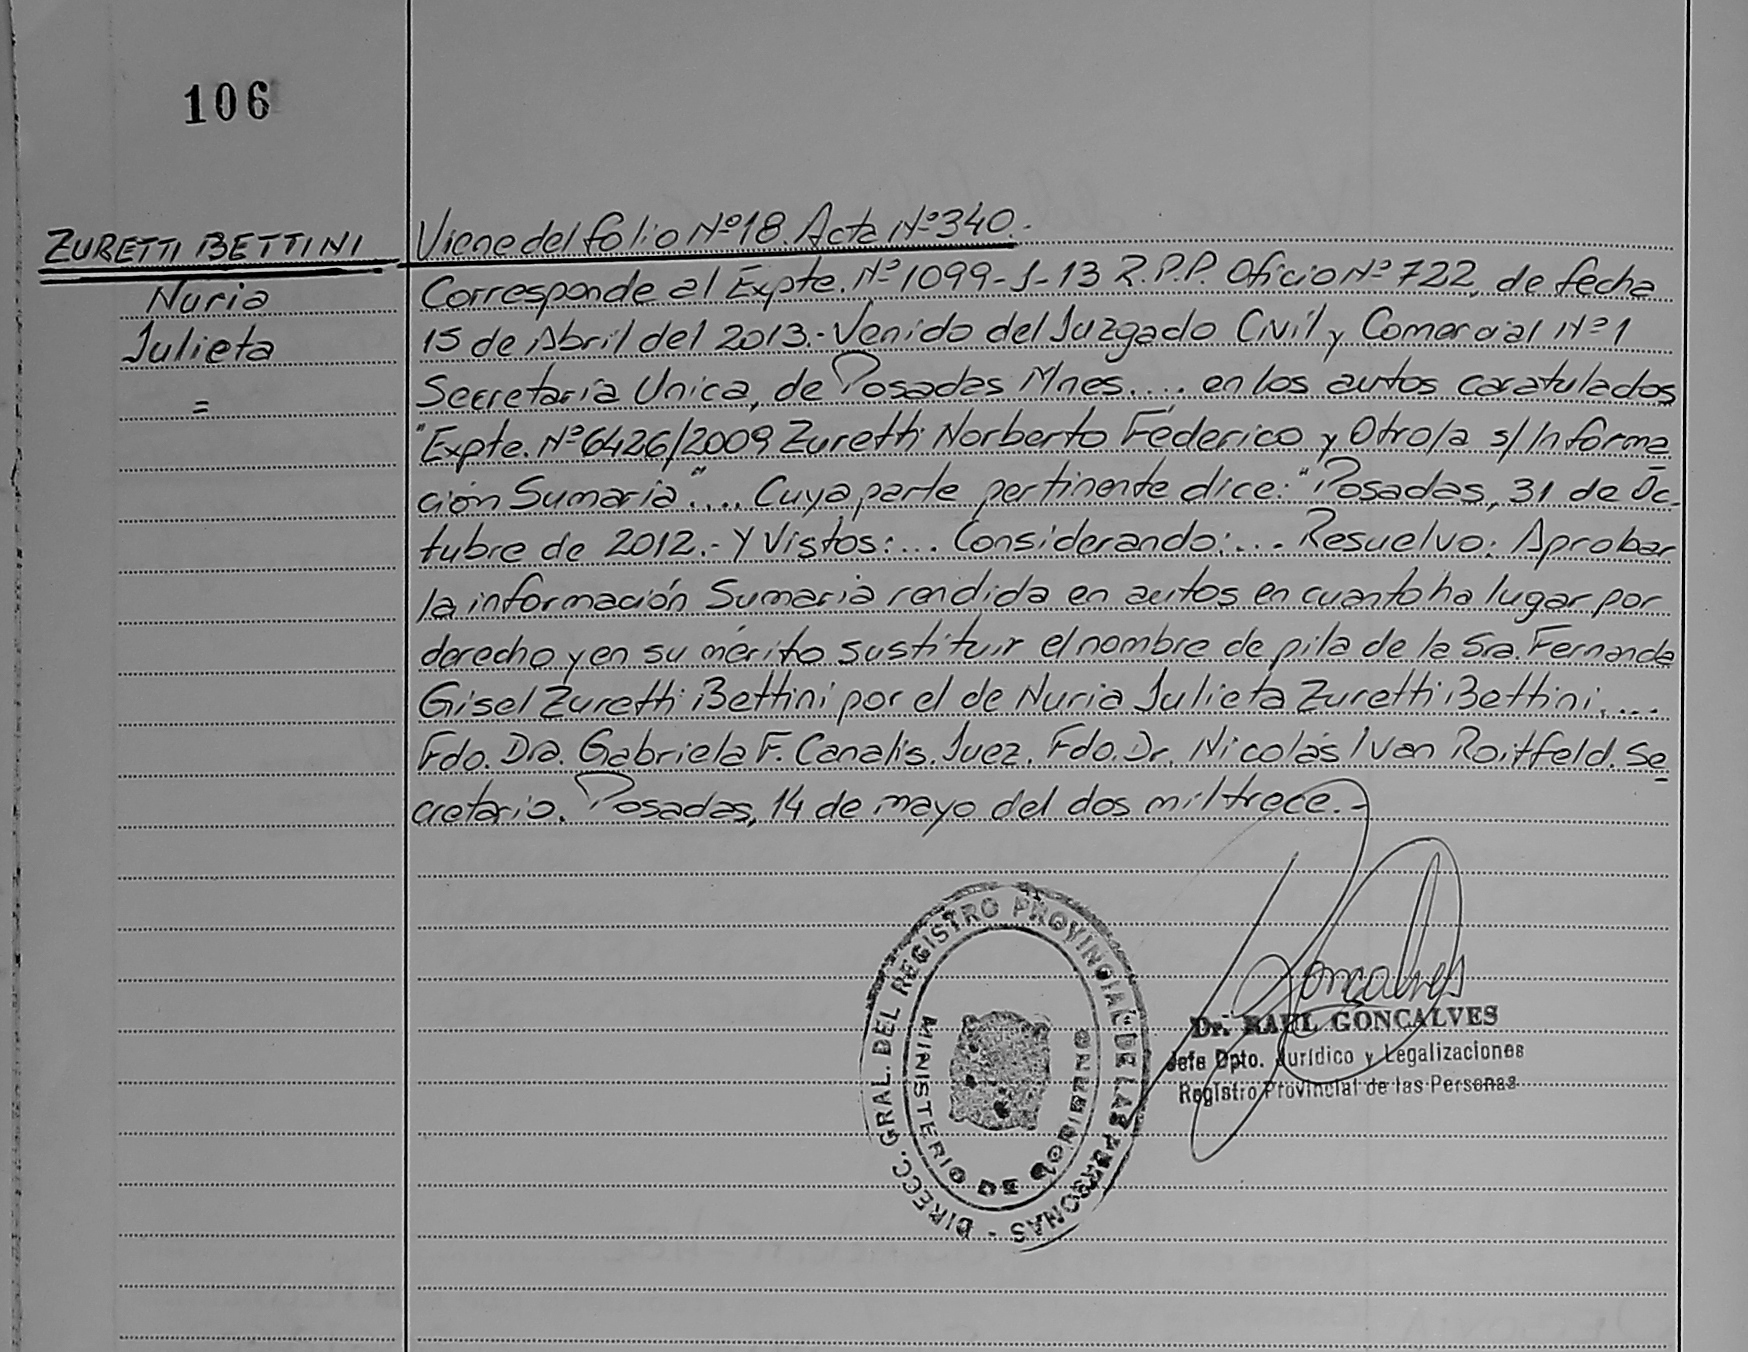 106
ZURETTI BETTINI
Nuria
Julieta
=
Viene del folio Nº 18. Acta Nº 340.-
Corresponde al Expte. Nº 1099-J-13 R.P.P. Oficio Nº 722, de fecha
15 de Abril del 2013.- Venido del Juzgado Civil y Comercial Nº 1
Secretaría Unica, de Posadas Mnes.... en los autos caratulados
"Expte. Nº 6426/2009 Zuretti Norberto Féderico y Otro/a s/Informa
ción Sumaria".... Cuya parte pertinente dice: "Posadas, 31 de Oc-
tubre de 2012.- Y Vistos:... Considerando:... Resuelvo: Aprobar
la información Sumaria rendida en autos en cuanto ha lugar por
derecho y en su mérito sustituir el nombre de pila de la Sra. Fernanda
Gisel Zuretti Bettini por el de Nuria Julieta Zuretti Bettini....
Fdo. Dra. Gabriela F. Canalis. Juez. Fdo. Dr. Nicolás Ivan Roitfeld. Se
cretario. Posadas, 14 de mayo del dos mil trece.-
DIRECC. GRAL. DEL REGISTRO PROVINCIAL DE LAS PERSONAS -
MINISTERIO DE GOBIERNO
Goncalves
Dr. RAUL GONCALVES
Jefe Dpto. Jurídico y Legalizaciones
Registro Provincial de las Personas